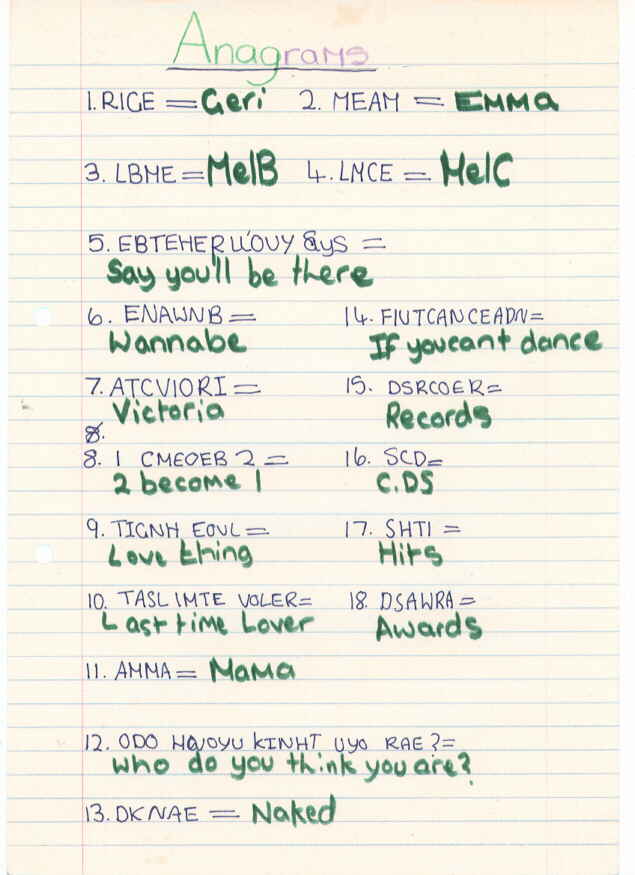 Anagrams
1. RIGE = Geri 2. MEAM = EMMa
3. LBME = MelB 4. LMCE = MelC
5. EBTEHERLL'OUY SayS =
Say you'll be there
6. ENAWNB =
Wannabe
14. FIUTCANCEADN=
If youcant dance
7. ATCVIORI =
Victoria
15. DSRCOER=
Records
8.
8. 1 CMEOEB 2 =
2 become 1
16. SCD=
C.DS
9. TIGNH EOVL =
Love thing
17. SHTI =
Hits
10. TASL IMTE VOLER=
Last time Lover
18. DSAWRA =
Awards
11. AMMA = Mama
12. ODO HWOYU KINHT UYO RAE?=
who do you think you are?
13. DKNAE = Naked